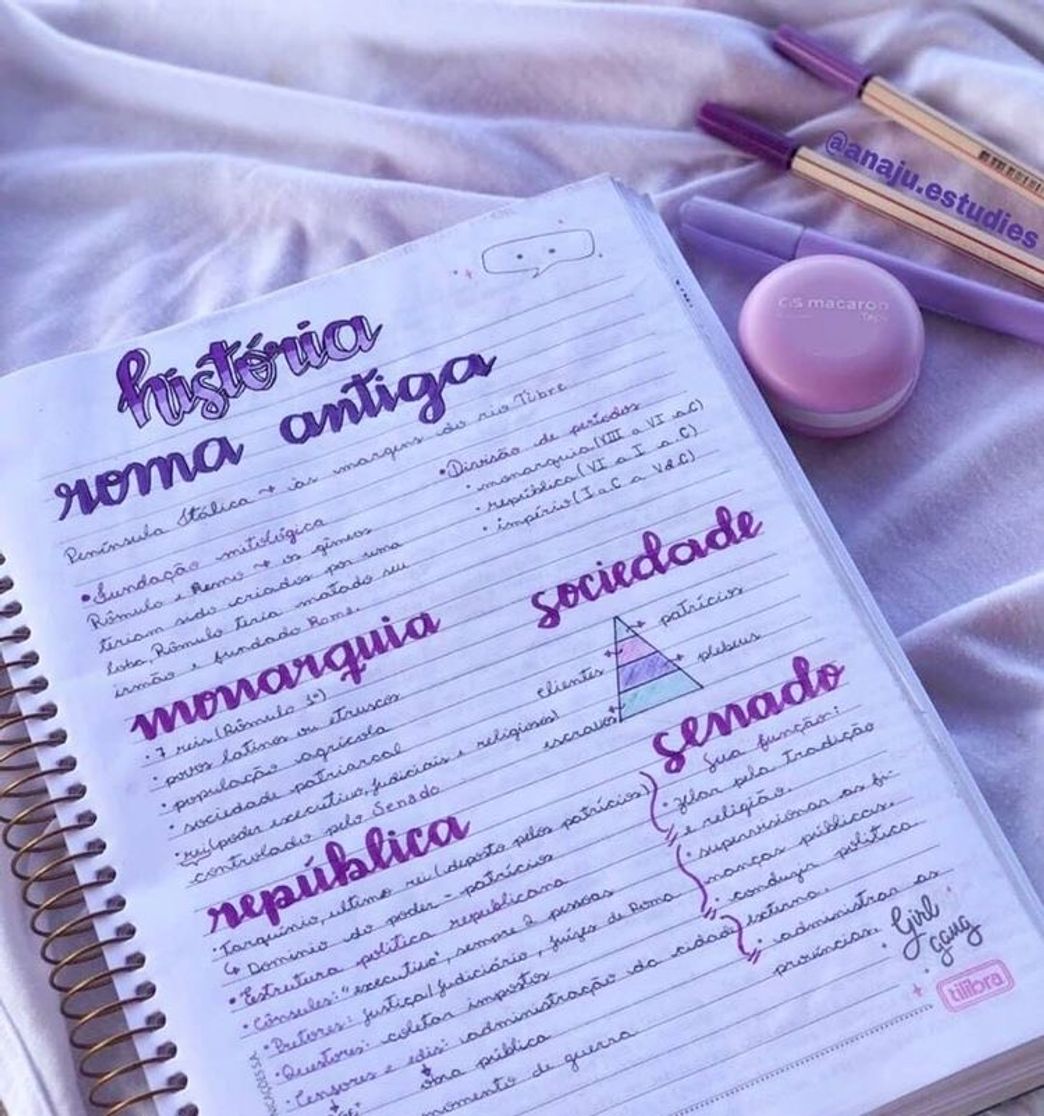 @anaju.estudies
CiS macaron
história
roma antiga
Península Itálica → às margens do rio Tibre
• Fundação mitológica
Rômulo e Remo → os gêmeos
teriam sido criados por uma
loba, Rômulo teria matado seu
irmão e fundado Roma.
• Divisão de períodos
• monarquia (VIII a VI a.C)
• república (VI a I a.C)
• império (I a.C a V d.C)
monarquia
• 7 reis (Rômulo 1º)
• povos latinos ou etruscos
• população agrícola
• sociedade patriarcal
• rei (poder executivo, judiciais e religiosos)
controlado pelo Senado
sociedade
patrícios
plebeus
clientes
escravos
república
• Tarquínio, ultimo rei (deposto pelos patrícios)
↳ Dominio do poder = patrícios
• Estrutura politica republicana
• Cônsules: "executivo", sempre 2 pessoas
• Pretores: justiça/judiciário, juízes de Roma
• Questores: coletar impostos
• Censores e edis: administração da cidade
obra pública
momento de guerra
senado
Sua função:
• zelar pela tradição
e religião.
• supervisionar as fi-
nanças públicas.
• conduzir política
externa.
• administrar as
províncias.
Girl
gang
tilibra